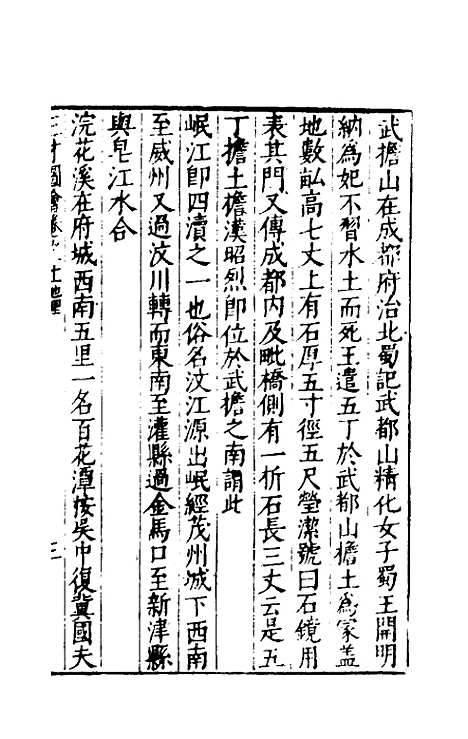 武擔山在成都府治北蜀記武都山精化女子蜀王開明
納爲妃不習水土而死王遣五丁於武都山擔土爲冢蓋
地數畝高七丈上有石厚五寸徑五尺瑩潔號曰石鏡用
表其門又傳成都內及毗橋側有一折石長三丈云是五
丁擔土擔漢昭烈卽位於武擔之南謂此
岷江卽四瀆之一也俗名汶江源出岷經茂州城下西南
至威州又過汶川轉而東南至灌縣過金馬口至新津縣
與皂江水合
浣花溪在府城西南五里一名百花潭按吳中復冀國夫
三才圖會卷 土地理
三